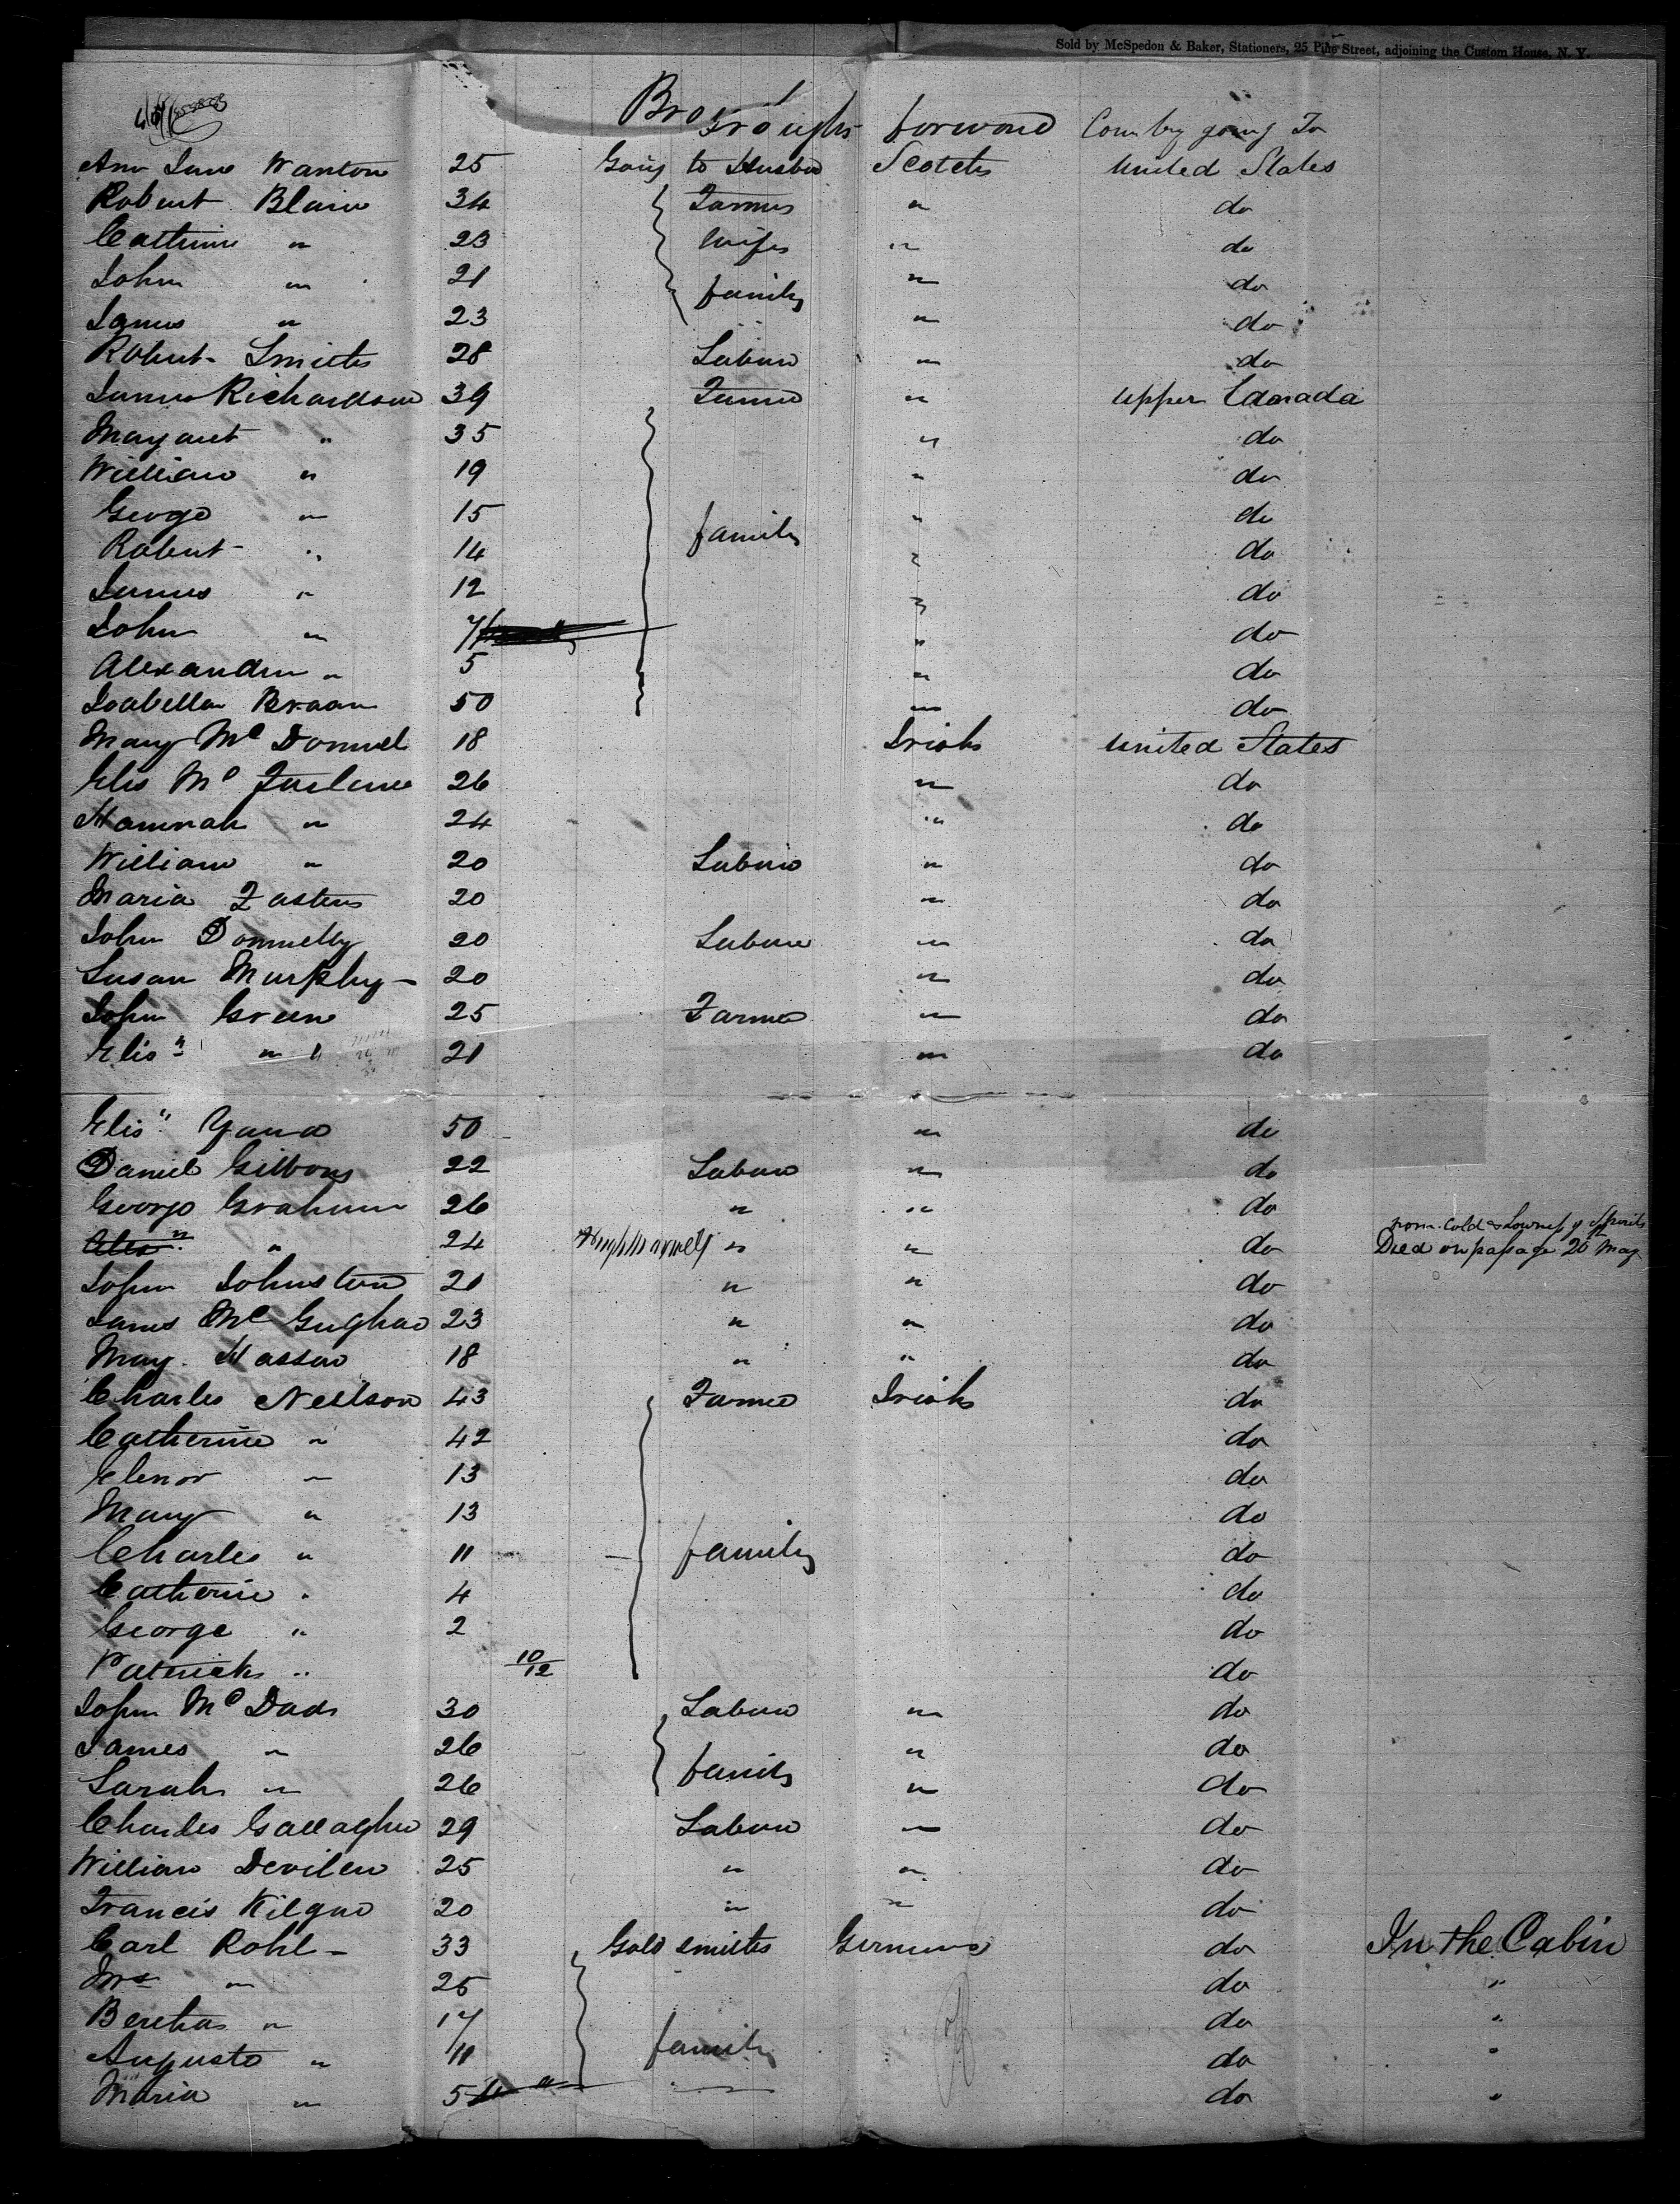 Sold by McSpedon & Baker, Stationers, 25 Pine Street, adjoining the Custom House, N. Y.
Brought forward Country going To
Ann Jane Wanton 25 Going to Husband Scotch United States
Robert Blair 34 Farmer " do
Catherine " 23 Wife " do
John " 21 family " do
James " 23 " do
Robert Smith 28 Labour " do
James Richardson 39 Farmer " Upper Canada
Margaret " 35 " do
William " 19 " do
George " 15 family " do
Robert " 14 " do
James " 12 " do
John " 7 " do
Alexander " 5 " do
Isabella 50 " do
Mary Mc Donnel 18 Irish United States
Elis Mc Farlane 26 " do
Hannah " 24 " do
William " 20 Labour " do
Maria 20 " do
John Donnelly 20 Labour " do
Susan Murphy 20 " do
John Green 25 Farmer " do
Elis " 21 " do
Elis 50 " do
Daniel Gibbons 22 Labour " do
George Graham 26 " " do
from Cold & Lowness of Spirits
" 24 " " do Died on passage 20th May
John Johnston 20 " " do
James Mc 23 " " do
Mary Hassan 18 " " do
Charles Neilson 43 Farmer Irish do
Catherine " 42 do
Elenor " 13 do
Mary " 13 do
Charles " 11 family do
Catherine " 4 do
George " 2 do
Patrick " 10/12 do
John Mc Dade 30 Labour " do
James " 26 family " do
Sarah " 26 " do
Charles Gallagher 29 Labour " do
William Devilen 25 " " do
Francis 20 " " do
Carl Rohl 33 Gold smith German do In the Cabin
Mrs " 25 do "
Bertha " 17 do "
Augusto " 11 family do "
Maria " 5 do "